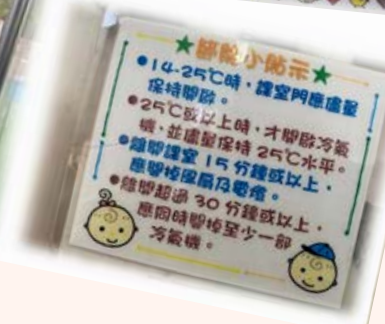 ★節能小貼示★
●14-25℃時，課室門應儘量
保持開啟。
●25℃或以上時，才開啟冷氣
機，並儘量保持 25℃水平。
●離開課室 15 分鐘或以上，
應關掉風扇及電燈。
●離開超過 30 分鐘或以上，
應同時關掉至少一部
冷氣機。